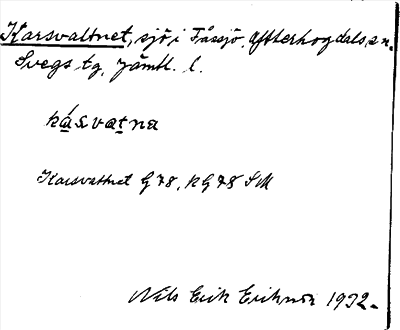 Karsvattnet, sjö i Fåssjö, Ytterhogdals sn.
Svegs tg, Jämtl. l.
kásvatna
Karsvattnet G 78, RG 78 SM
Nils Erik Erikson 1932.